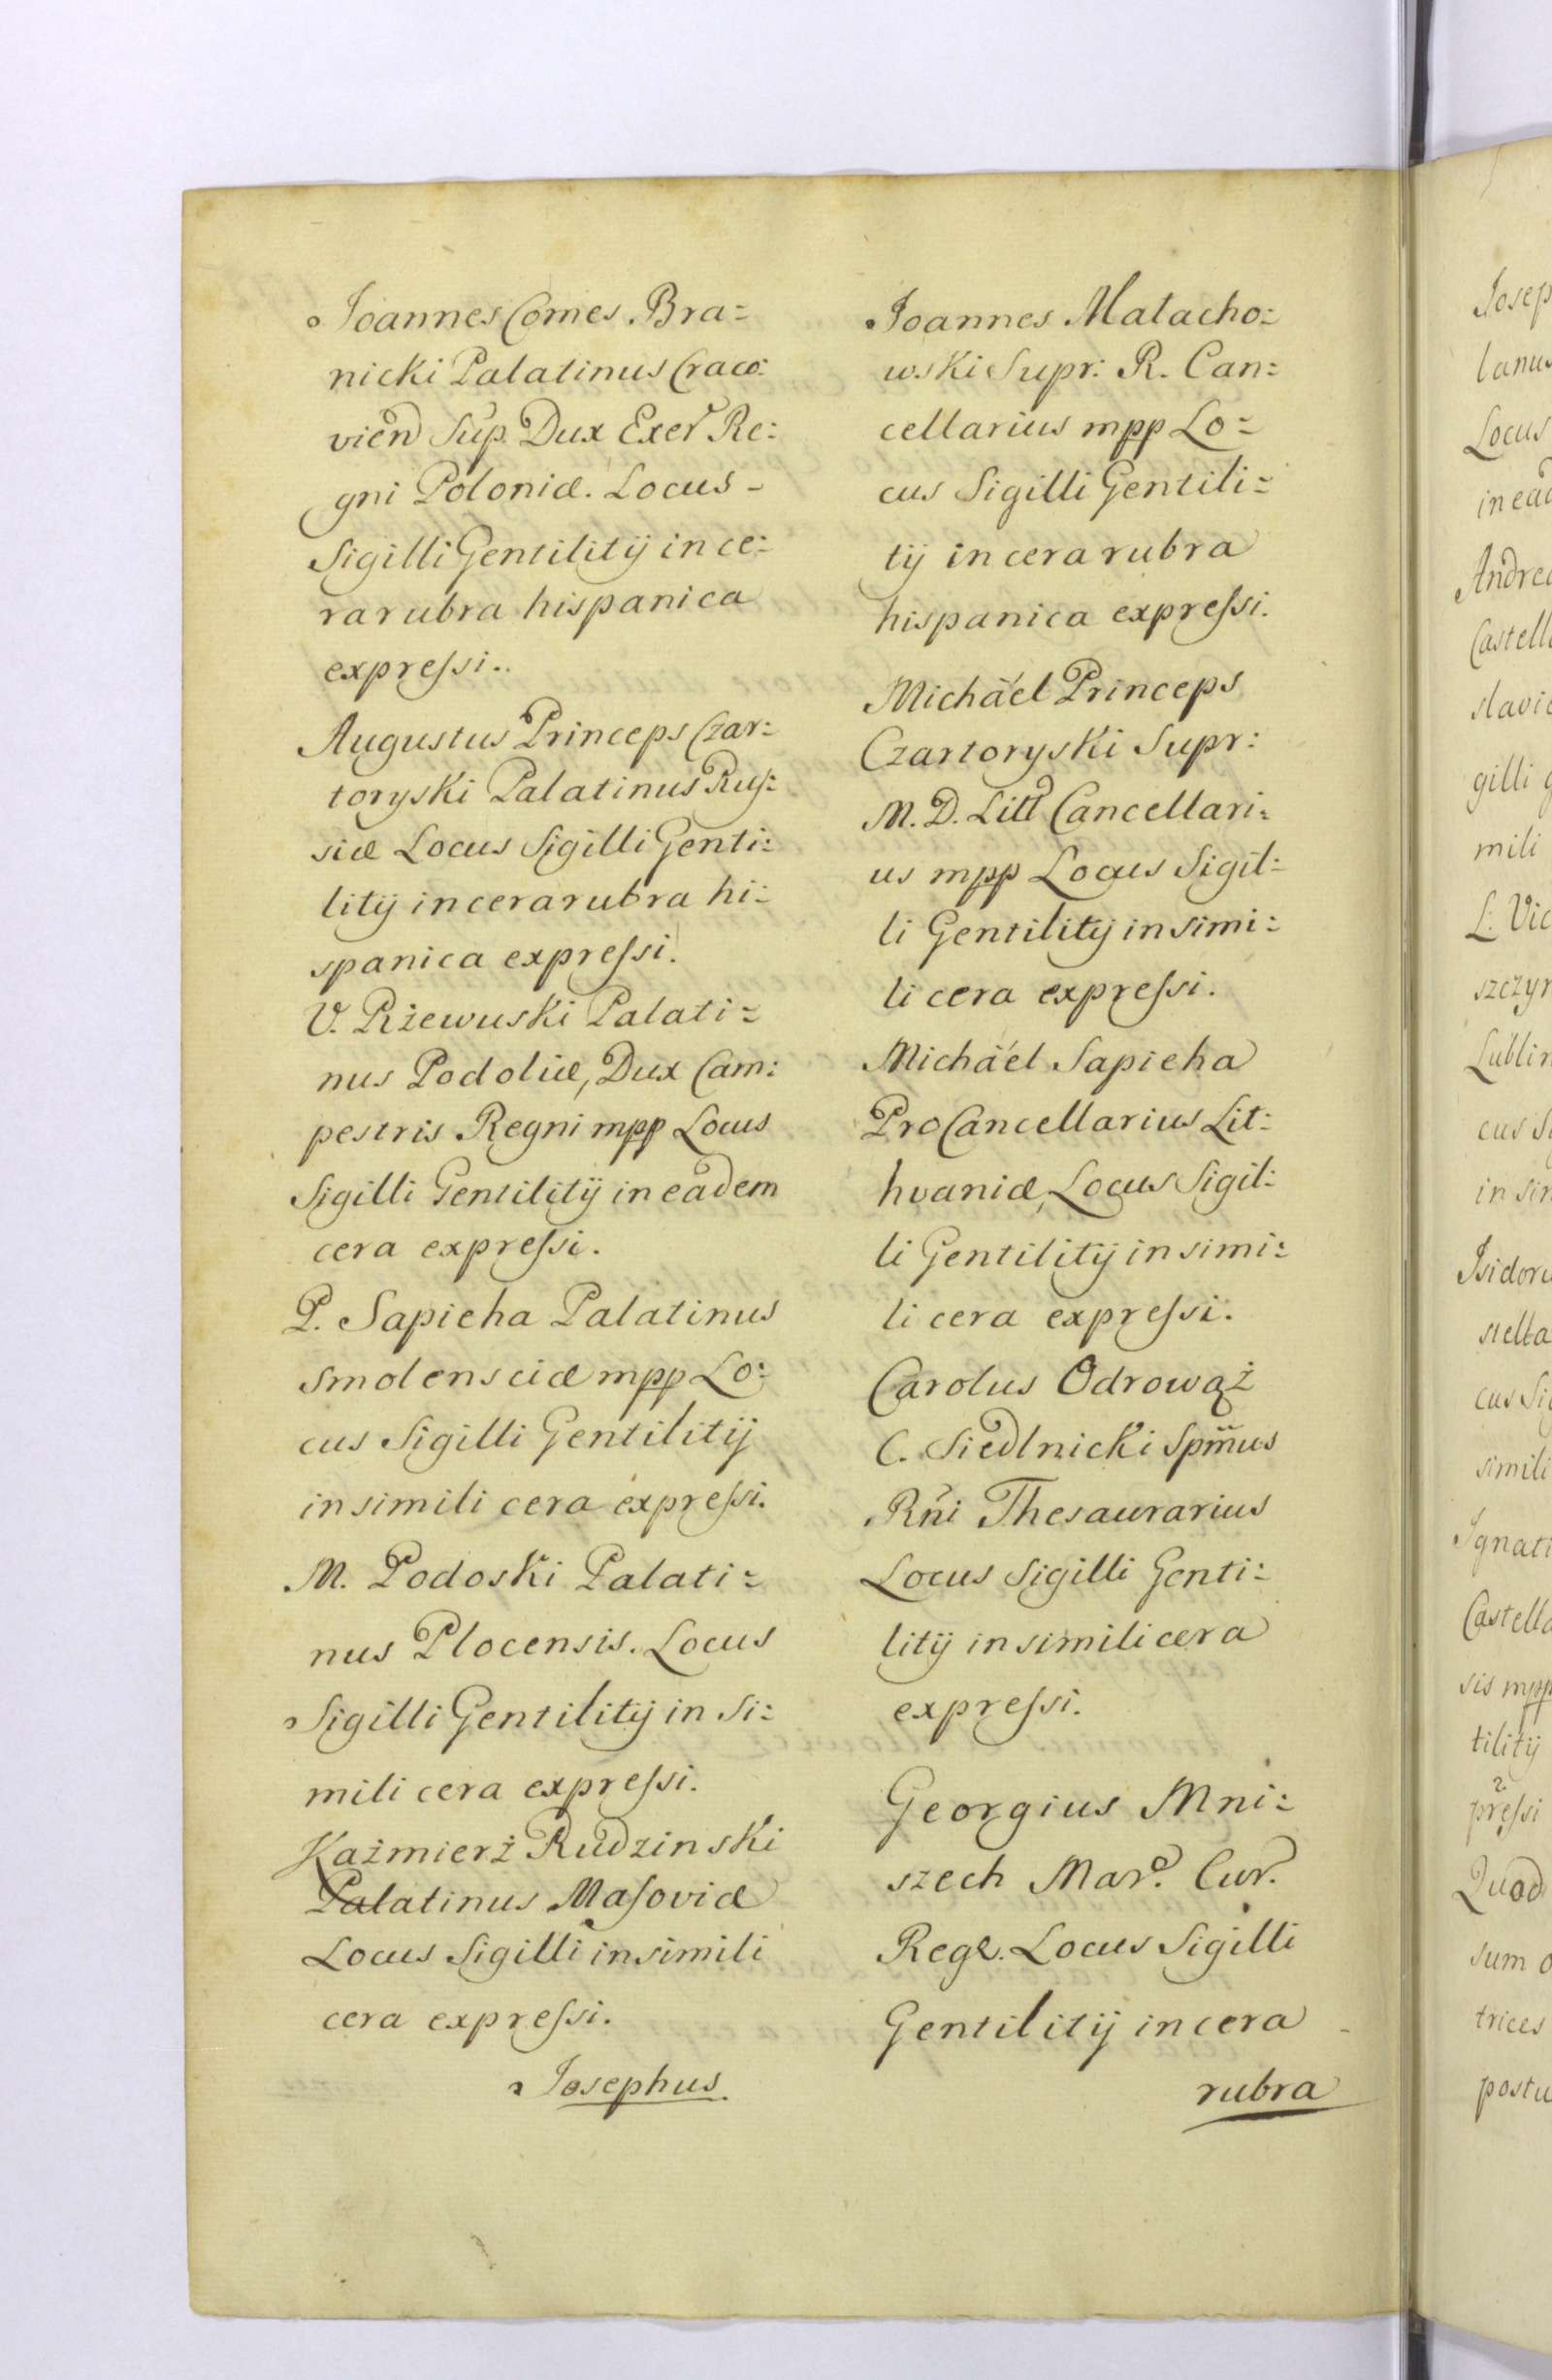 Joannes Comes Bra=
nicki Palatinus Craco:
vien Sup. Dux Exer Re:
gni Poloniæ. Locus-
Sigilli Gentilitij in ce:
ra rubra hispanica
expressi..
Augustus Princeps Czar:
toryski Palatinus Rus:
siæ Locus Sigilli Genti:
litij in cera rubra hi:
spanica expressi.
V. Rżewuski Palati=
nus Podoliæ, Dux Cam:
pestris Regni mpp Locus
Sigilli Gentilitij in eâdem
cera expressi.
P. Sapieha Palatinus
Smolensciæ mpp Lo:
cus Sigilli Gentilitij
in simili cera expressi.
M. Podoski Palati=
nus Plocensis. Locus
Sigilli Gentilitij in Si:
mili cera expressi.
Kaźmierż Rudzinski
Palatinus Masoviæ
Locus Sigilli in simili
cera expressi.
Josephus
Joannes Małacho:
wski Supr: R. Can:
cellarius mpp Lo=
cus Sigilli Gentili=
tij in cera rubra
hispanica expressi.
Michäel Princeps
Czartoryski Supr:
M. D. Litt Cancellari:
us mpp Locus Sigil:
li Gentilitij in simi:
li cera expressi.
Michäel Sapieha
ProCancellarius Lit:
hvaniæ, Locus Sigil:
li Gentilitij in simi:
li cera expressi.
Carolus Odrowąż
C. Siedlnicki Spm̃us
Rñi Thesaurarius
Locus Sigilli Genti:
litij in simili cera
expressi.
Georgius Mni:
szech Mar. Cur.
Regn. Locus Sigilli
Gentilitij in cera
rubra
Josep
lanus
Locus
in ead
Andrea
Castell
slavie
gilli g
mili
L: Vic
szczyn
Lublin
cus Si
in sim
Isidoru
stella
cus Sig
simili
Ignati
Castella
sis mpp
tilitij
pressi
Quod
sum o
trices
postu